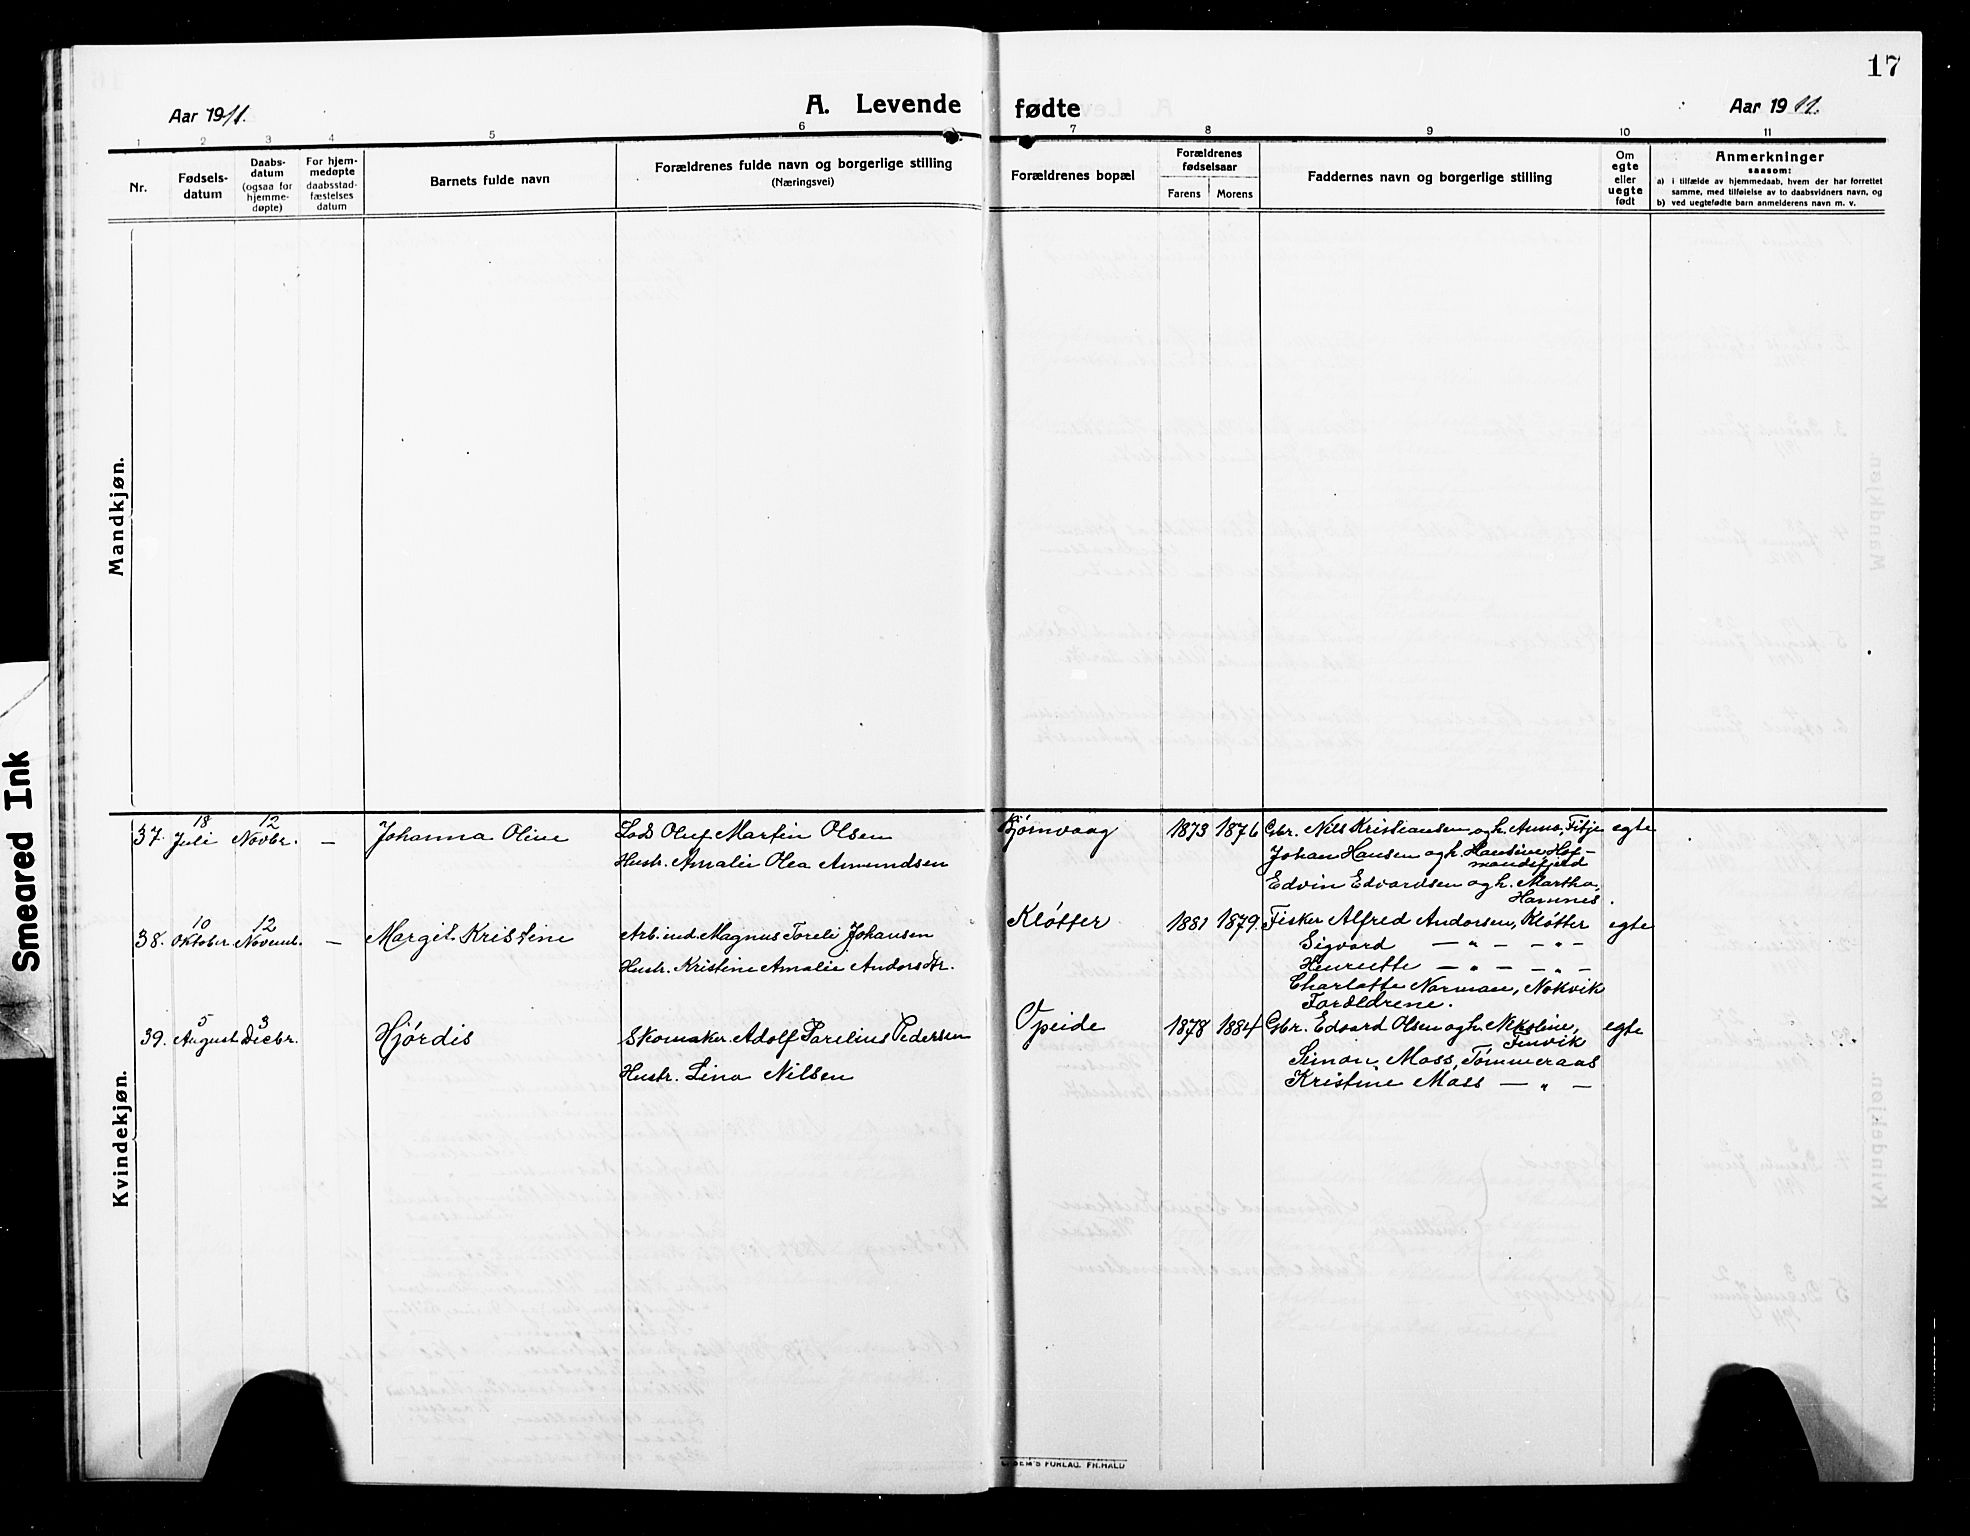 17
Aar 1911.
A. Levende fødte
Aar 1911.
1 2 3 4 5 6 7 8 9 10 11
Nr.
Fødsels-
datum
Daabs-
datum
(ogsaa for
hjemme-
døpte)
For hjem-
medøpte
daabsstad-
fæstelses
datum
Barnets fulde navn
Forældrenes fulde navn og borgerlige stilling
(Næringsvei)
Forældrenes bopæl
Forældrenes
fødselsaar
Farens Morens
Faddernes navn og borgerlige stilling
Om
egte
eller
uegte
født
Anmerkninger
saasom:
a) i tilfælde av hjemmedaab, hvem der har forrettet
samme, med tilføielse av to daabsvidners navn, og
b) ved uegtefødte barn anmelderens navn m. v.
Mandkjøn.
Kvindekjøn.
37. 18 Juli 12 Novbr. — Johanna Oline
Lods Oluf Martin Olsen
Hustr. Amalie Olea Amundsen
Bjørnvaag 1873 1876
Gbr. Nils Kristiansen og h. Anna, Fitje
Johan Hansen og h. Hansine Hof-
mandsfjeld
Edvin Edvardsen og h. Martha,
Hamnes.
egte
38. 10 Oktober 12 Novemb. — Margit Kristine
Arb.ind. Magnus Toreli Johansen
Hustr. Kristine Amalie Andorsdtr.
Kløtter 1881 1879.
Fisker Alfred Andorsen, Kløtter
Sigvard — " — — " —
Henriette — " — — " —
Charlotte Norman, Nokvik
Forældrene.
egte
39. 5 August 3 Decbr. Hjørdis
Skomaker Adolf Parelius Pedersen
Hustr. Lina Nilsen
Opeide 1878 1884
Gbr. Edvard Olsen og h. Nikoline,
Finvik
Simon Moss, Tømmeraas
Kristine Moss — " —
egte
FORLAG. FR.HALD
Smeared Ink